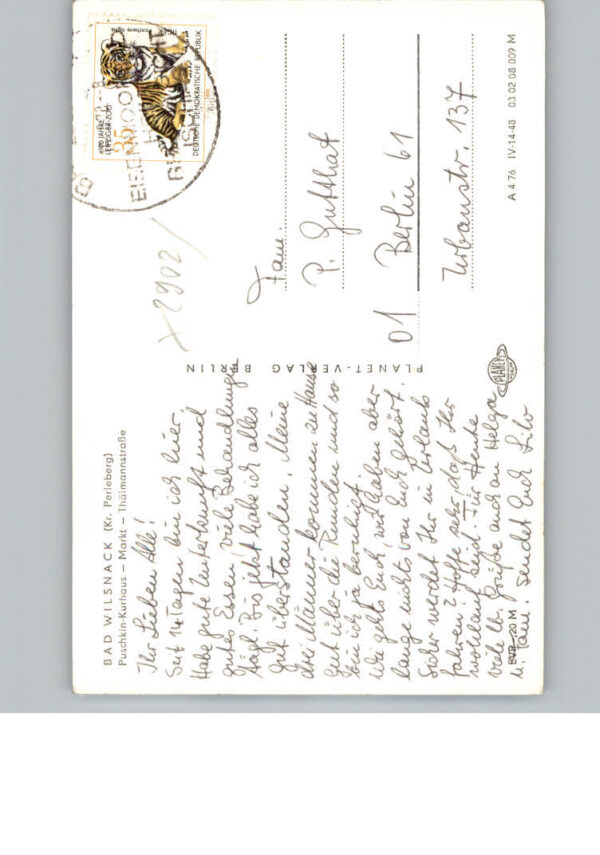 BAD WILSNACK (Kr. Perleberg)
Puschkin-Kurhaus — Markt — Thälmannstraße
Ihr Lieben Alle!
Seit 14 Tagen bin ich hier.
Habe gute Unterkunft und
gutes Essen! Viele Behandlungen
tägl. Bis jetzt habe ich alles
gut überstanden. Meine
drei Männer kommen zu Hause
gut über die Runden und so
bin ich ja beruhigt.
Wie gehts Euch, wir haben aber
lange nichts von Euch gehört.
Sicher werdet Ihr in Urlaub
fahren? Hoffe sehr, daß Ihr
wohlauf seid. Für Heute
viele lb. Grüße auch an Helga
u. Fam. sendet Euch Lilo
EVP —,20 M
PLANET-VERLAG BERLIN
PLANET
Fam.
P. Gutthat
01 Berlin 61
Urbanstr. 137
A 4 76 IV-14-48 03 02 08 009 M
x 2902/
100 JAHRE
LEIPZIGER ZOO
35
DEUTSCHE DEMOKRATISCHE REPUBLIK